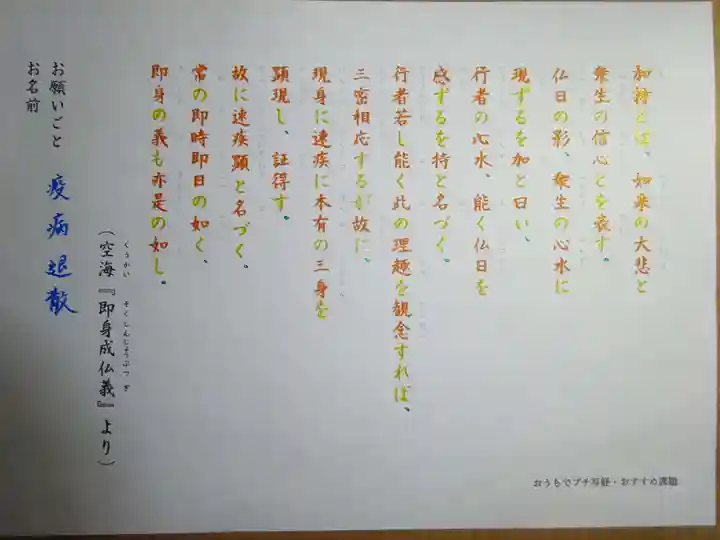 加持とは、如来の大悲と
衆生の信心とを表す。
仏日の影、衆生の心水に
現ずるを加と曰い、
行者の心水、能く仏日を
感ずるを持と名づく。
行者若し能く此の理趣を観念すれば、
三密相応するが故に、
現身に速疾に本有の三身を
顕現し、証得す。
故に速疾顕と名づく。
常の即時即日の如く、
即身の義も亦是の如し。
(空海『即身成仏義』より)
くうかい そくしんじょうぶつぎ
お願いごと 疫病退散
お名前
おうちでプチ写経・おすすめ課題